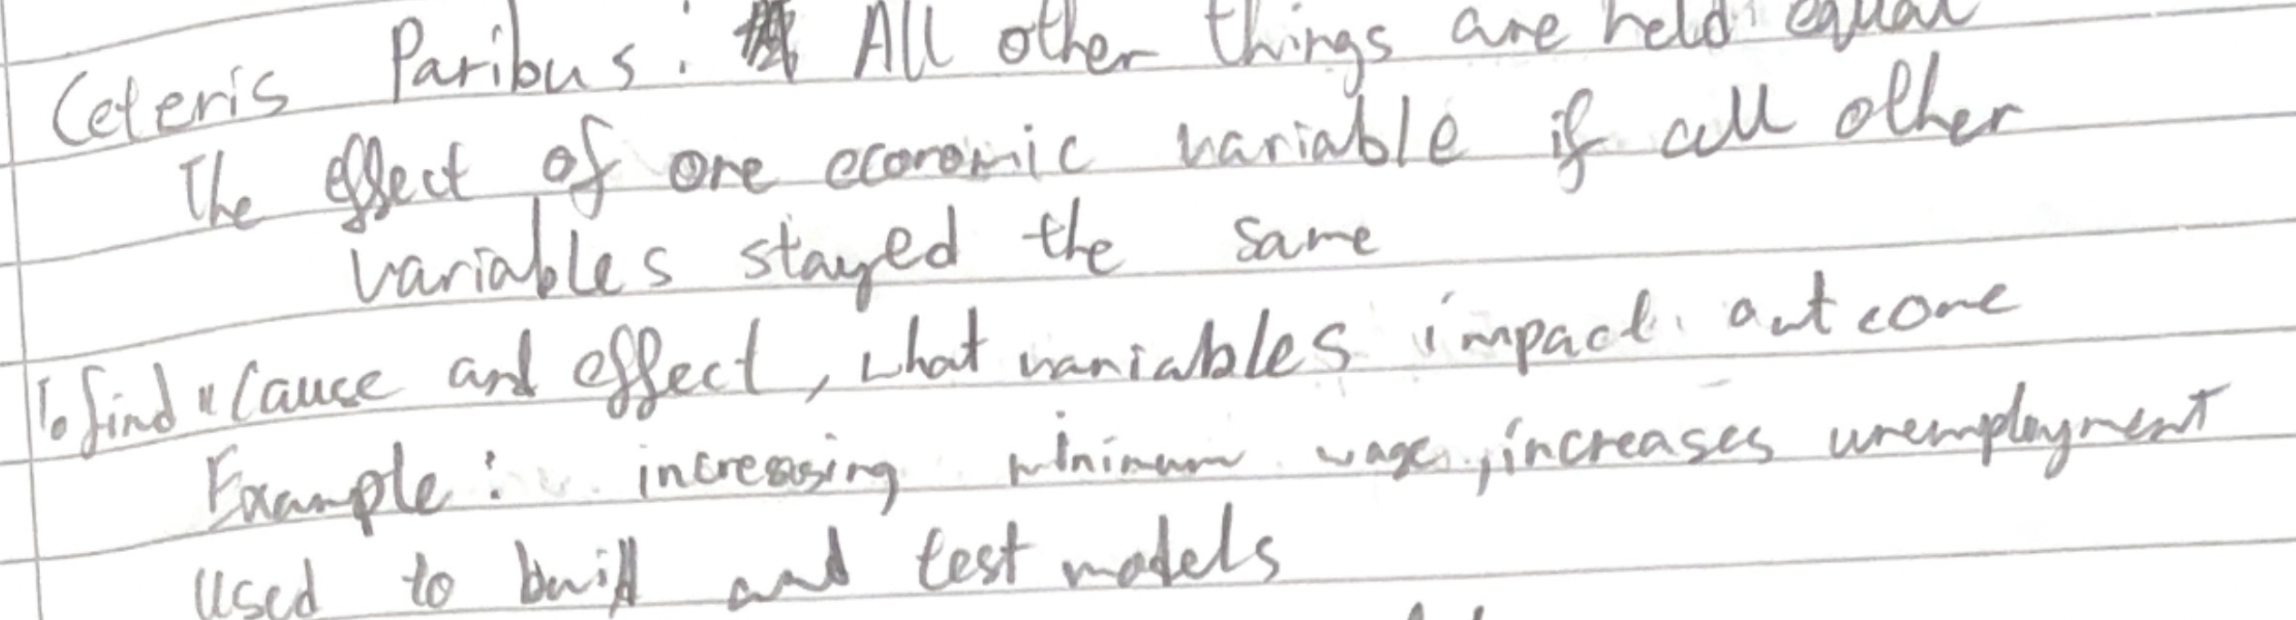 Ceteris Paribus: All other things are held equal
The effect of one economic variable if all other
variables stayed the same
To find "Cause and effect, what variables impact outcome
Example: increasing minimum wage, increases unemployment
Used to build and test models